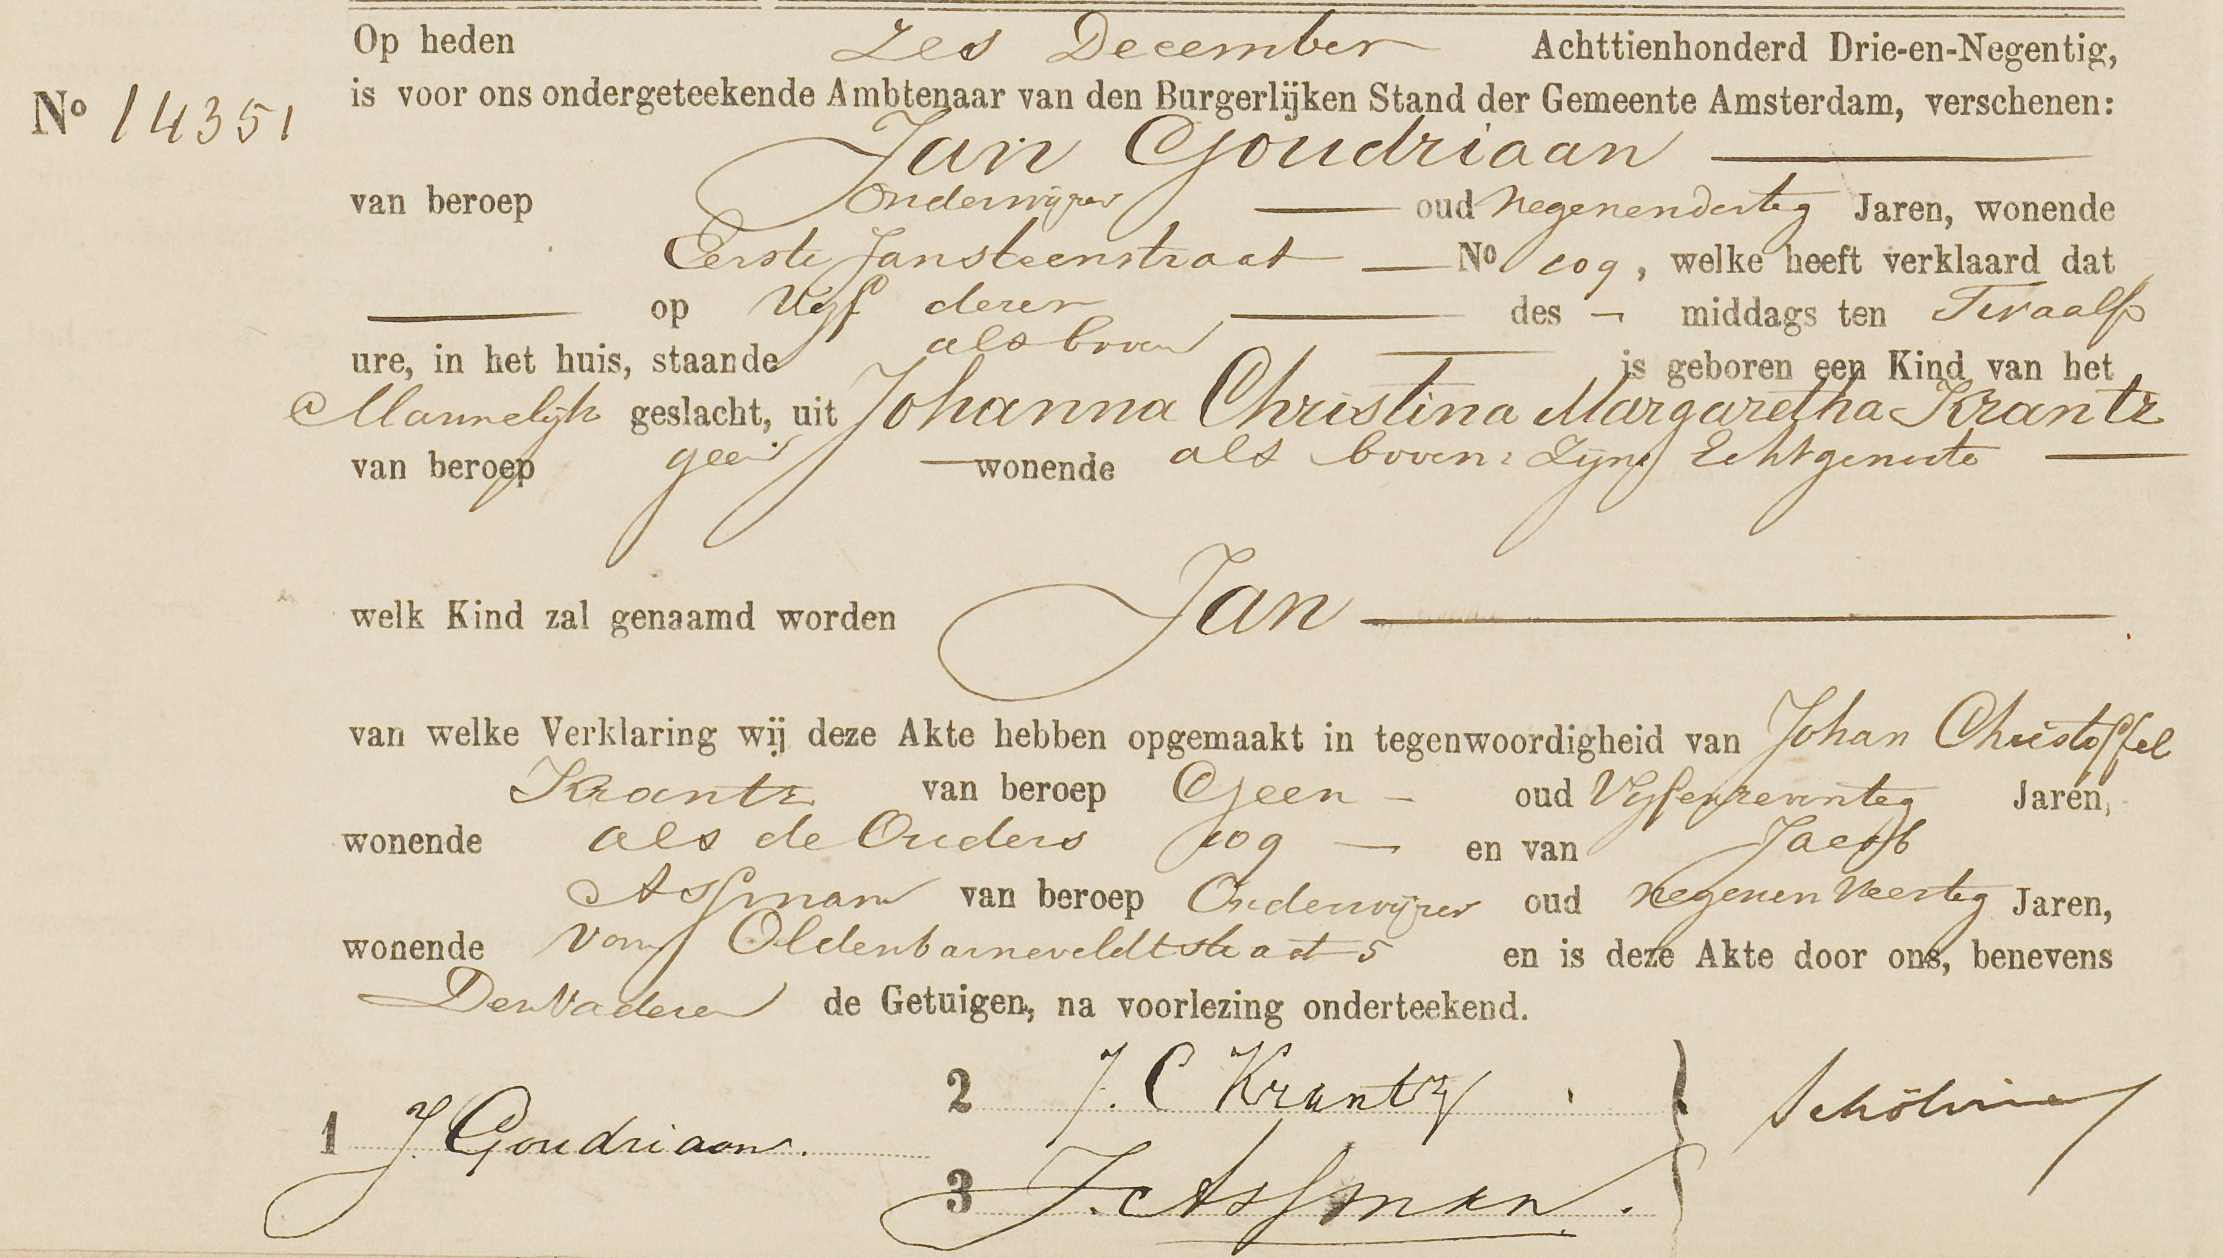 Op heden Zes December Achttienhonderd Drie-en-Negentig,
Nº 14351 is voor ons ondergeteekende Ambtenaar van den Burgerlijken Stand der Gemeente Amsterdam, verschenen:
Jan Goudriaan
van beroep Onderwijzer oud Negenendertig Jaren, wonende
Eerste Jansteenstraat Nº 109, welke heeft verklaard dat
op Vijf dezer des middags ten Twaalf
ure, in het huis, staande als boven is geboren een Kind van het
Mannelijk geslacht, uit Johanna Christina Margaretha Krantz
van beroep geen wonende als boven: Zijne Echtgenoote
welk Kind zal genaamd worden Jan
van welke Verklaring wij deze Akte hebben opgemaakt in tegenwoordigheid van Johan Christoffel
Krantz van beroep Geen oud Vijfenzeventig Jaren,
wonende als de Ouders 109 en van Jacob
Assman van beroep Onderwijzer oud Negenenveertig Jaren,
wonende Van Oldenbarneveldtstraat 5 en is deze Akte door ons, benevens
Den Vader en de Getuigen, na voorlezing onderteekend.
1 J. Goudriaan. 2 J. C Krantz
3 J. Assman.